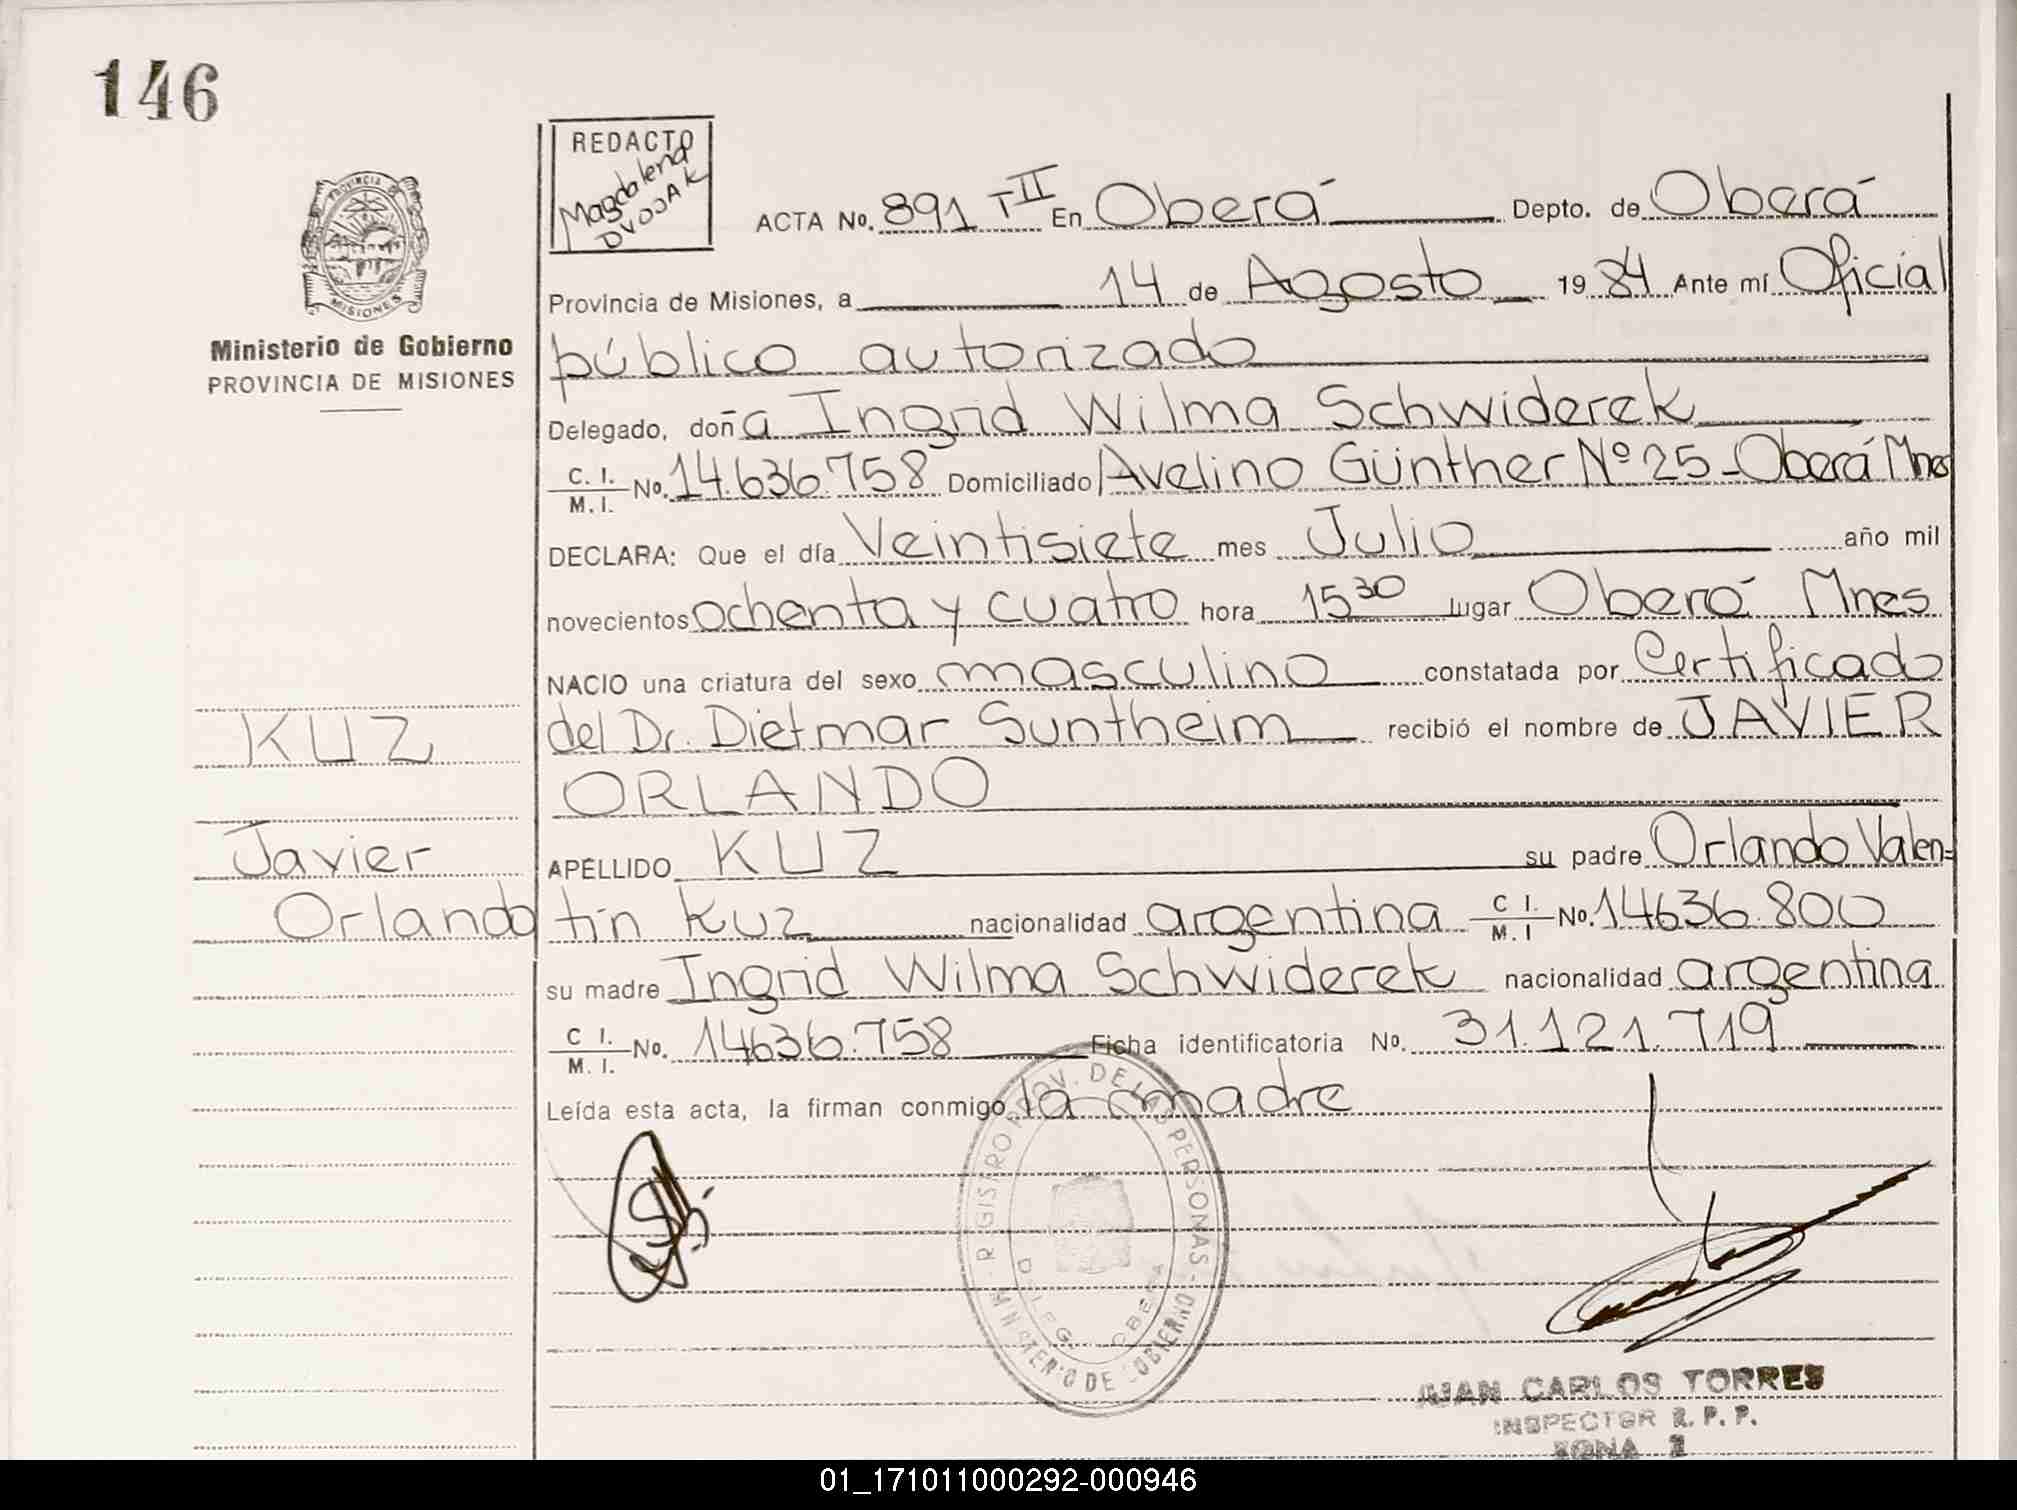 146
REDACTO
Magdalena
DVOJAK
PROVINCIA DE
MISIONES
Ministerio de Gobierno
PROVINCIA DE MISIONES
ACTA No. 891 TII En Oberá Depto. de Oberá
Provincia de Misiones, a 14 de Agosto 1984 Ante mí Oficial
público autorizado
Delegado, doña Ingrid Wilma Schwiderek
C. I. / M. I. No. 14.636.758 Domiciliado Avelino Günther Nº 25 - Oberá Mnes
DECLARA: Que el día Veintisiete mes Julio año mil
novecientos ochenta y cuatro hora 15 30 lugar Oberá Mnes
NACIO una criatura del sexo masculino constatada por Certificado
del Dr. Dietmar Suntheim recibió el nombre de JAVIER
ORLANDO
APELLIDO KUZ su padre Orlando Valen=
tín Kuz nacionalidad argentina C I. / M. I No. 14636.800
su madre Ingrid Wilma Schwiderek nacionalidad argentina
C I. / M. I. No. 14636.758 Ficha identificatoria No. 31.121.719
Leída esta acta, la firman conmigo la madre
KUZ
Javier
Orlando
REGISTRO PROV. DE LAS PERSONAS - MINISTERIO DE GOBIERNO
DELEG. OBERA
JUAN CARLOS TORRES
INSPECTOR R. P. P.
ZONA 2
01_171011000292-000946